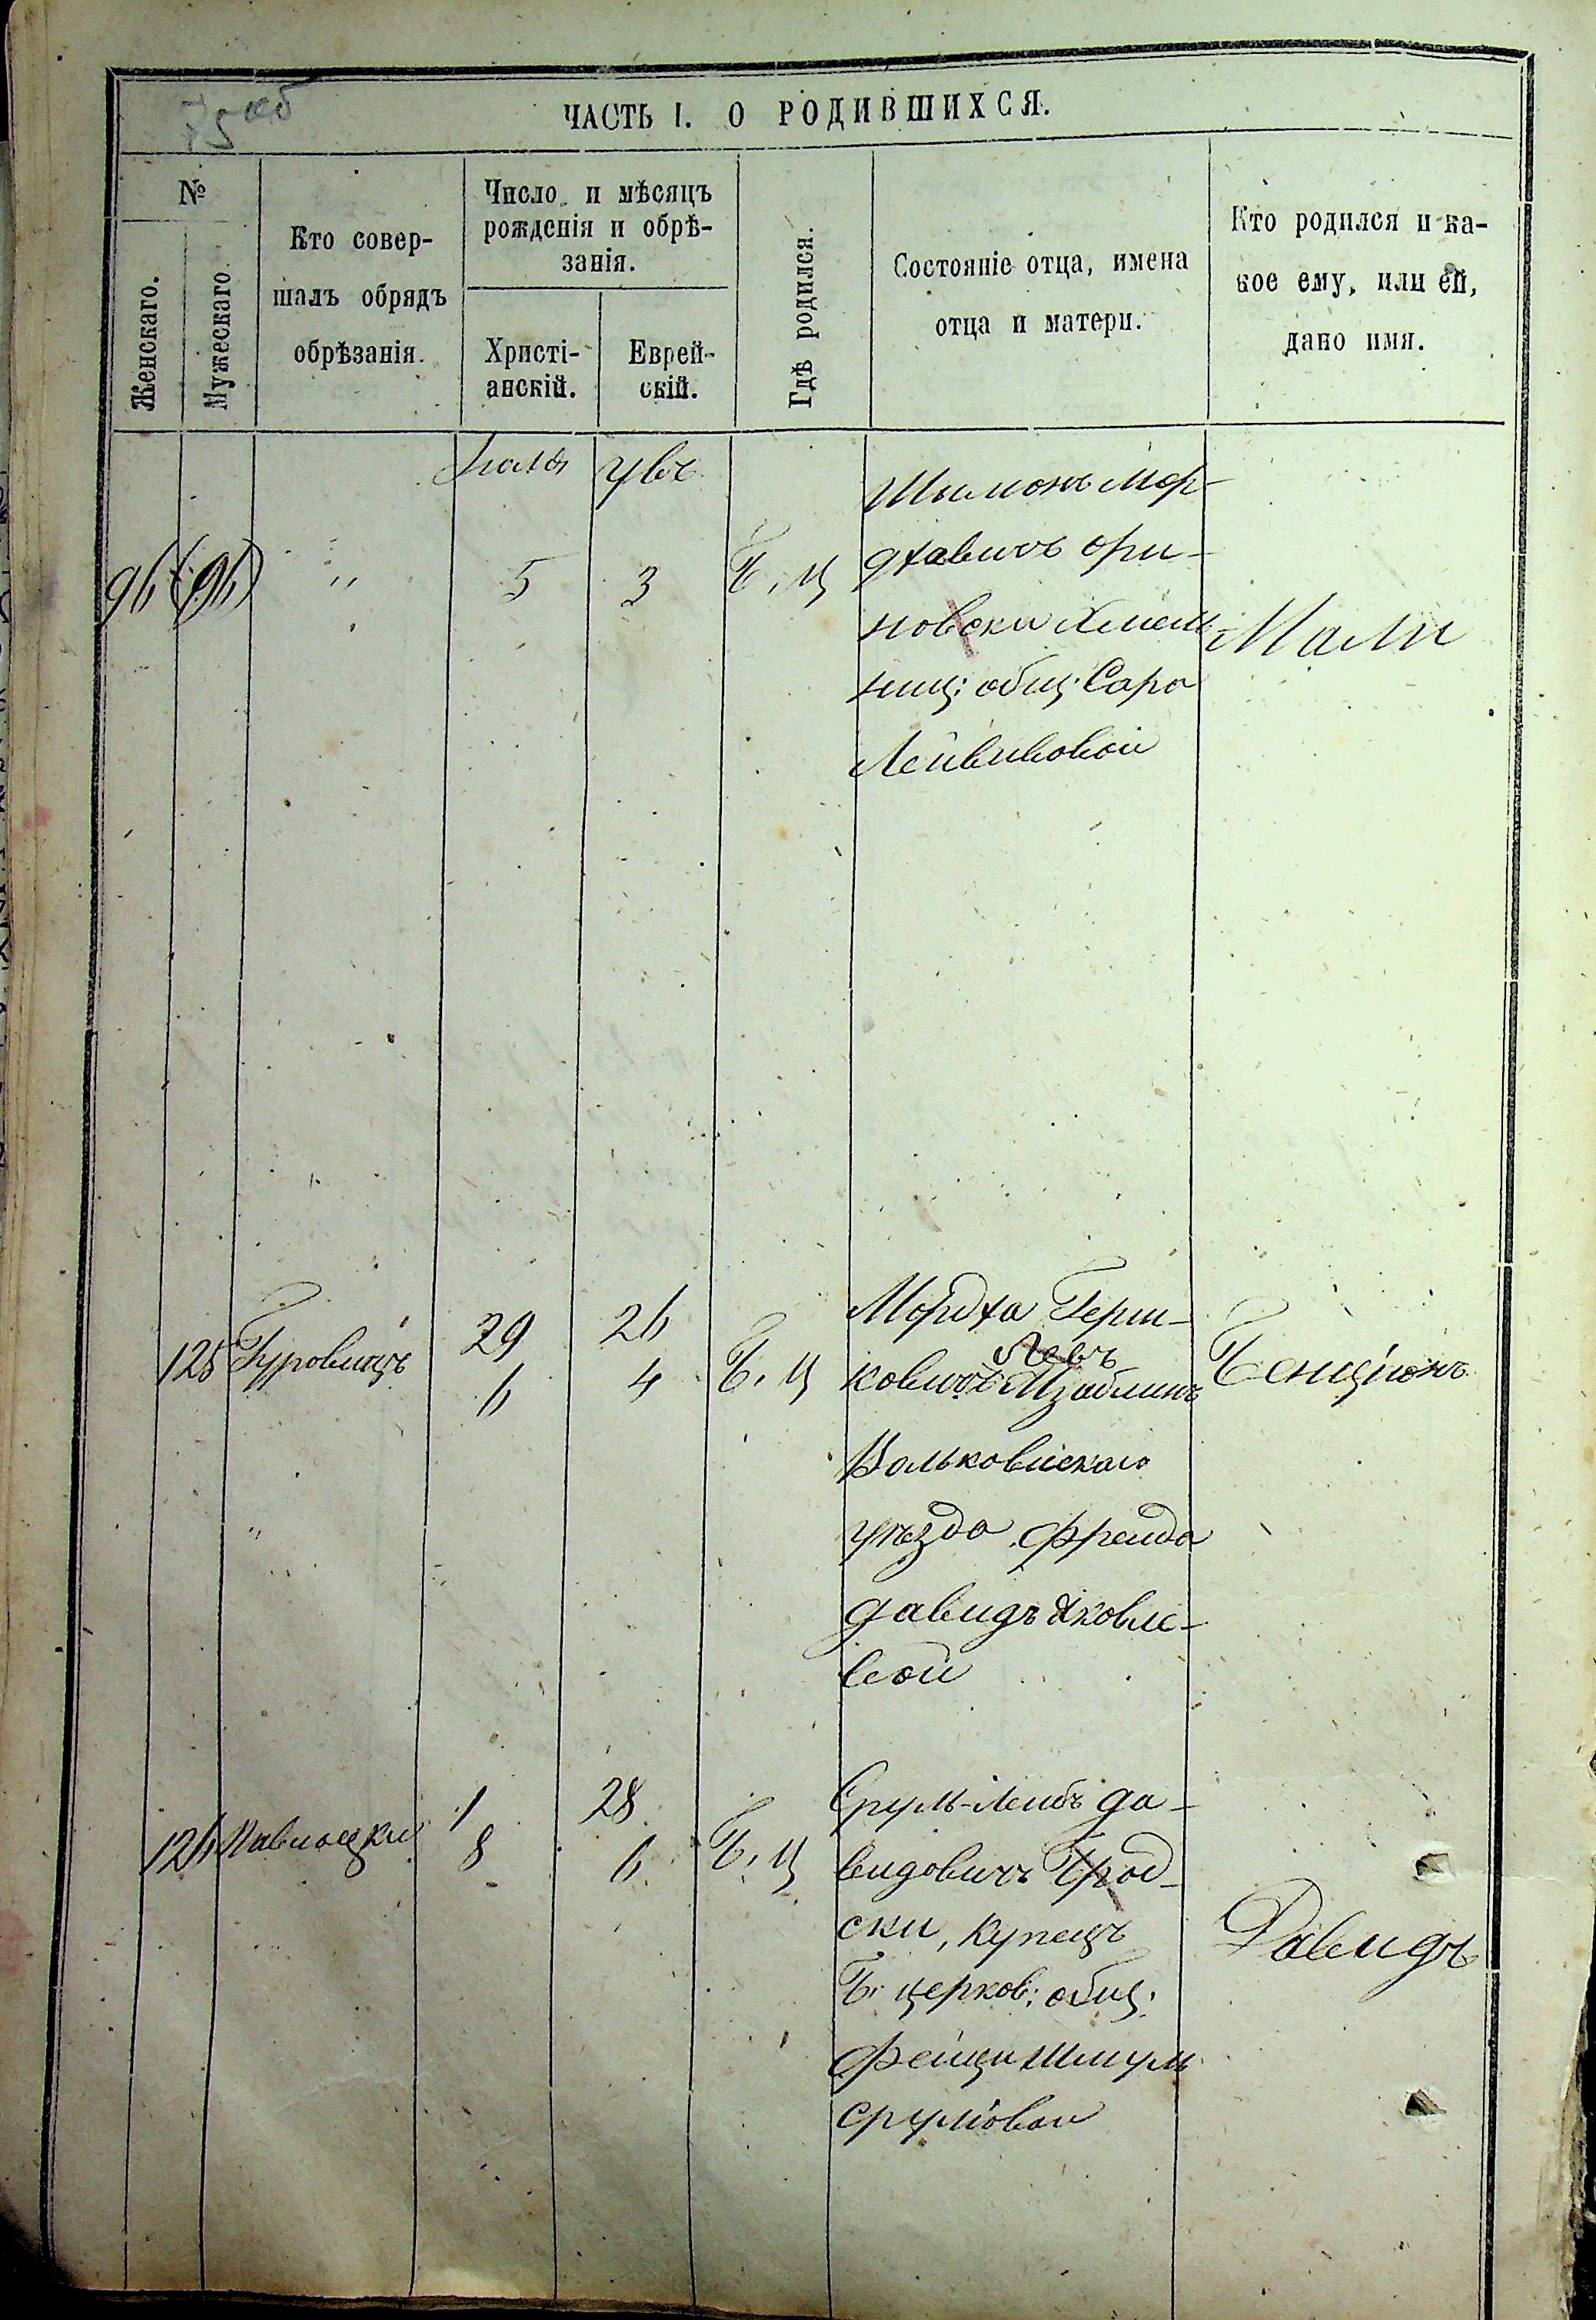 75 об
ЧАСТЬ I. О РОДИВШИХСЯ.
№
Женскаго.
Мужескаго
Кто совер-
шалъ обрядъ
обрѣзанія.
Число и мѣсяцъ
рожденія и обрѣ-
занія.
Христі-
анскій.
Еврей-
скій.
Гдѣ родился.
Состояніе отца, имена
отца и матери.
Кто родился и ка-
кое ему, или ей,
дано имя.
96 (96)
"
5
3
Б. Ц
Шимонъ Мор-
дхавичъ ори-
новски Хмель
ниц: общ: Сара
Лейвиковой
Мали
125
Гуровицъ
29
6
26
4
Б. Ц
Мордха Герш-
ковичъ Изаблинъ
Вольковискаго
уѣзда Фрейда
давидъ Яковле-
вой
Бенціонъ
"
126
Павлоцки
1
8
28
6
Б. Ц
Сруль-Лейбъ да-
видовичъ Грод-
ски, Купецъ
Б. церков: общ:
Фейци Шмуль
срулiовои
Давидъ